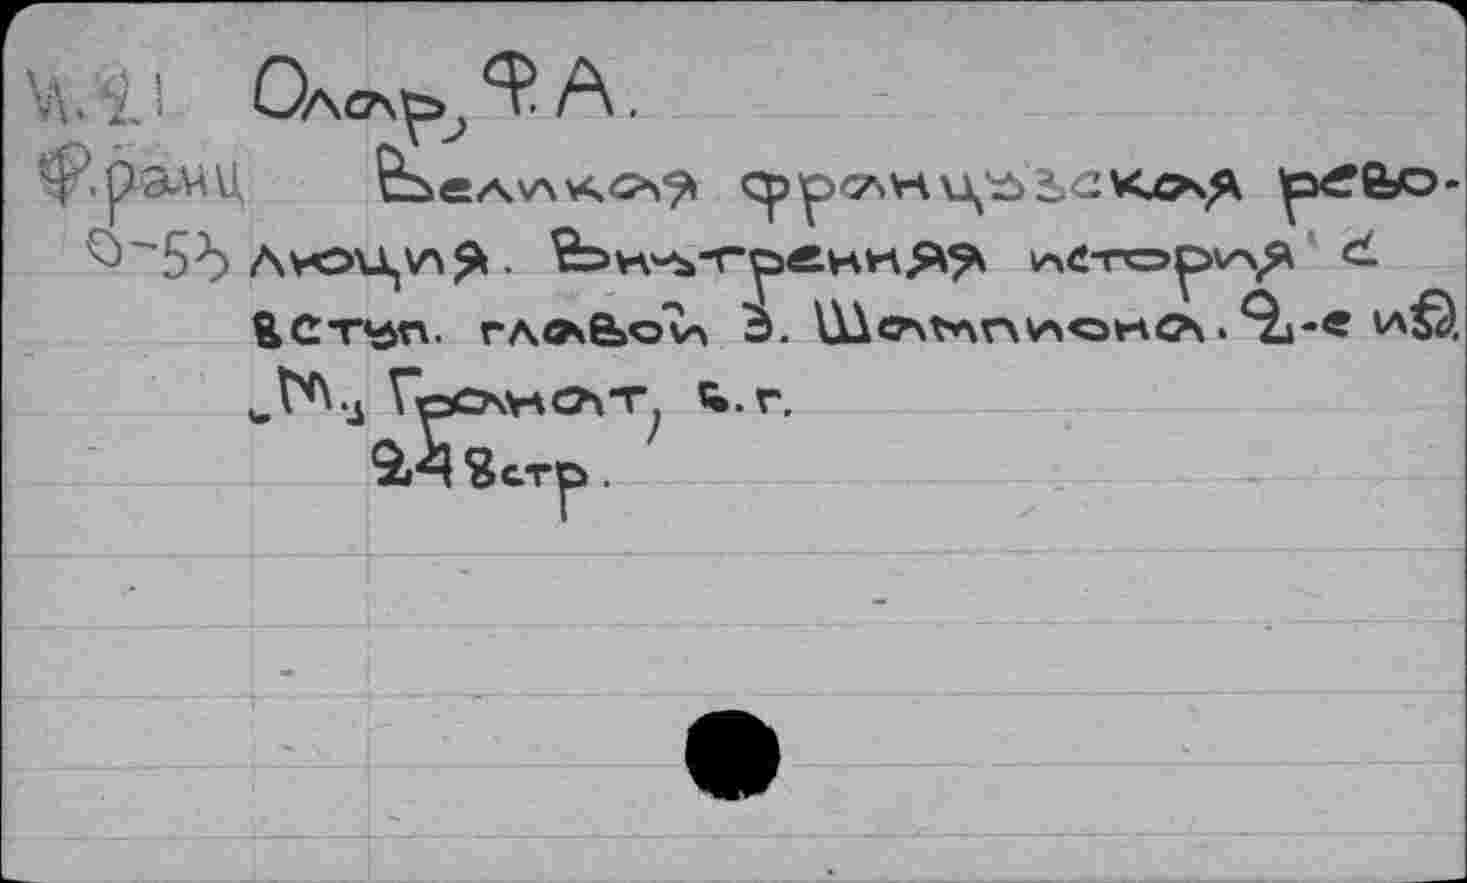 И.21 Олар, Ф. А.
Франц Великая французская рево-
О-53 люция. Внутренняя история с
вступ. главой Э. Шампиона. 2-е изд.
„М.„ Гранат, б. г.
248 стр.